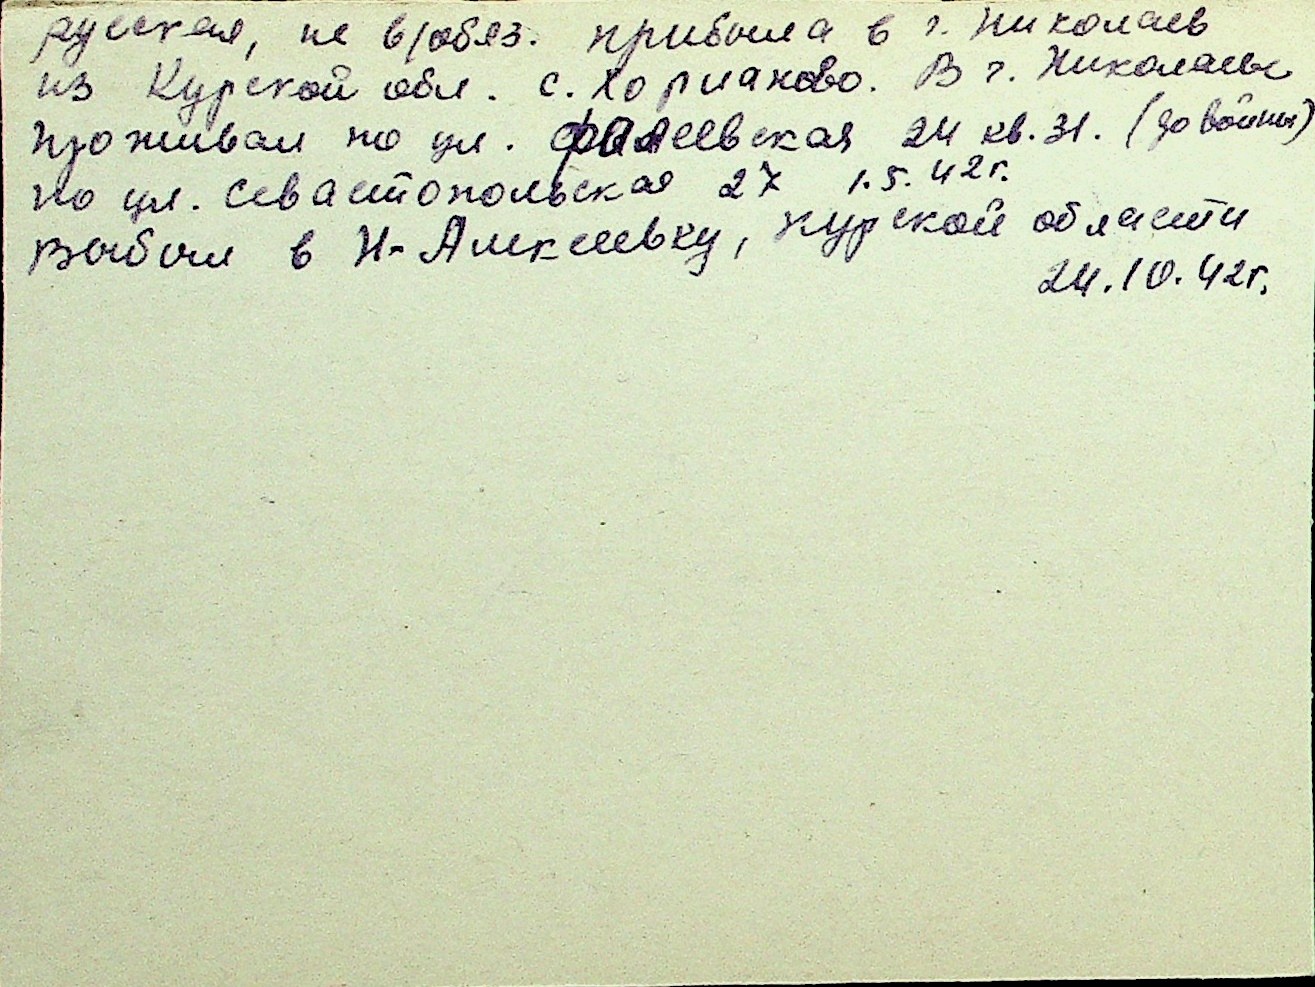 русская, не в/обяз. прибыла в г. Николаев
из Курской обл. с. Хорманово. В г. Николаеве
проживал по ул. Фалеевская 24 кв. 31. (до войны)
по ул. Севастопольская 27 1.5.42г.
выбыл в Н-Алексеевку, Курской области
24.10.42г.